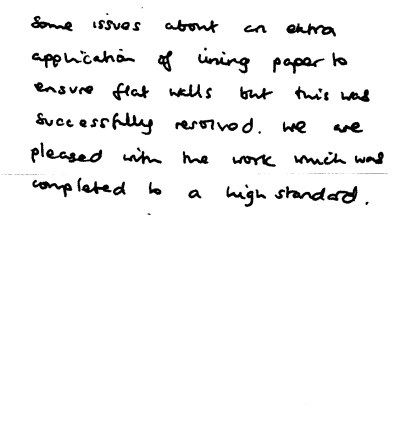 Some issues about an extra
application of lining paper to
ensure flat walls but this was
successfully resolved. We are
pleased with the work which was
completed to a high standard.